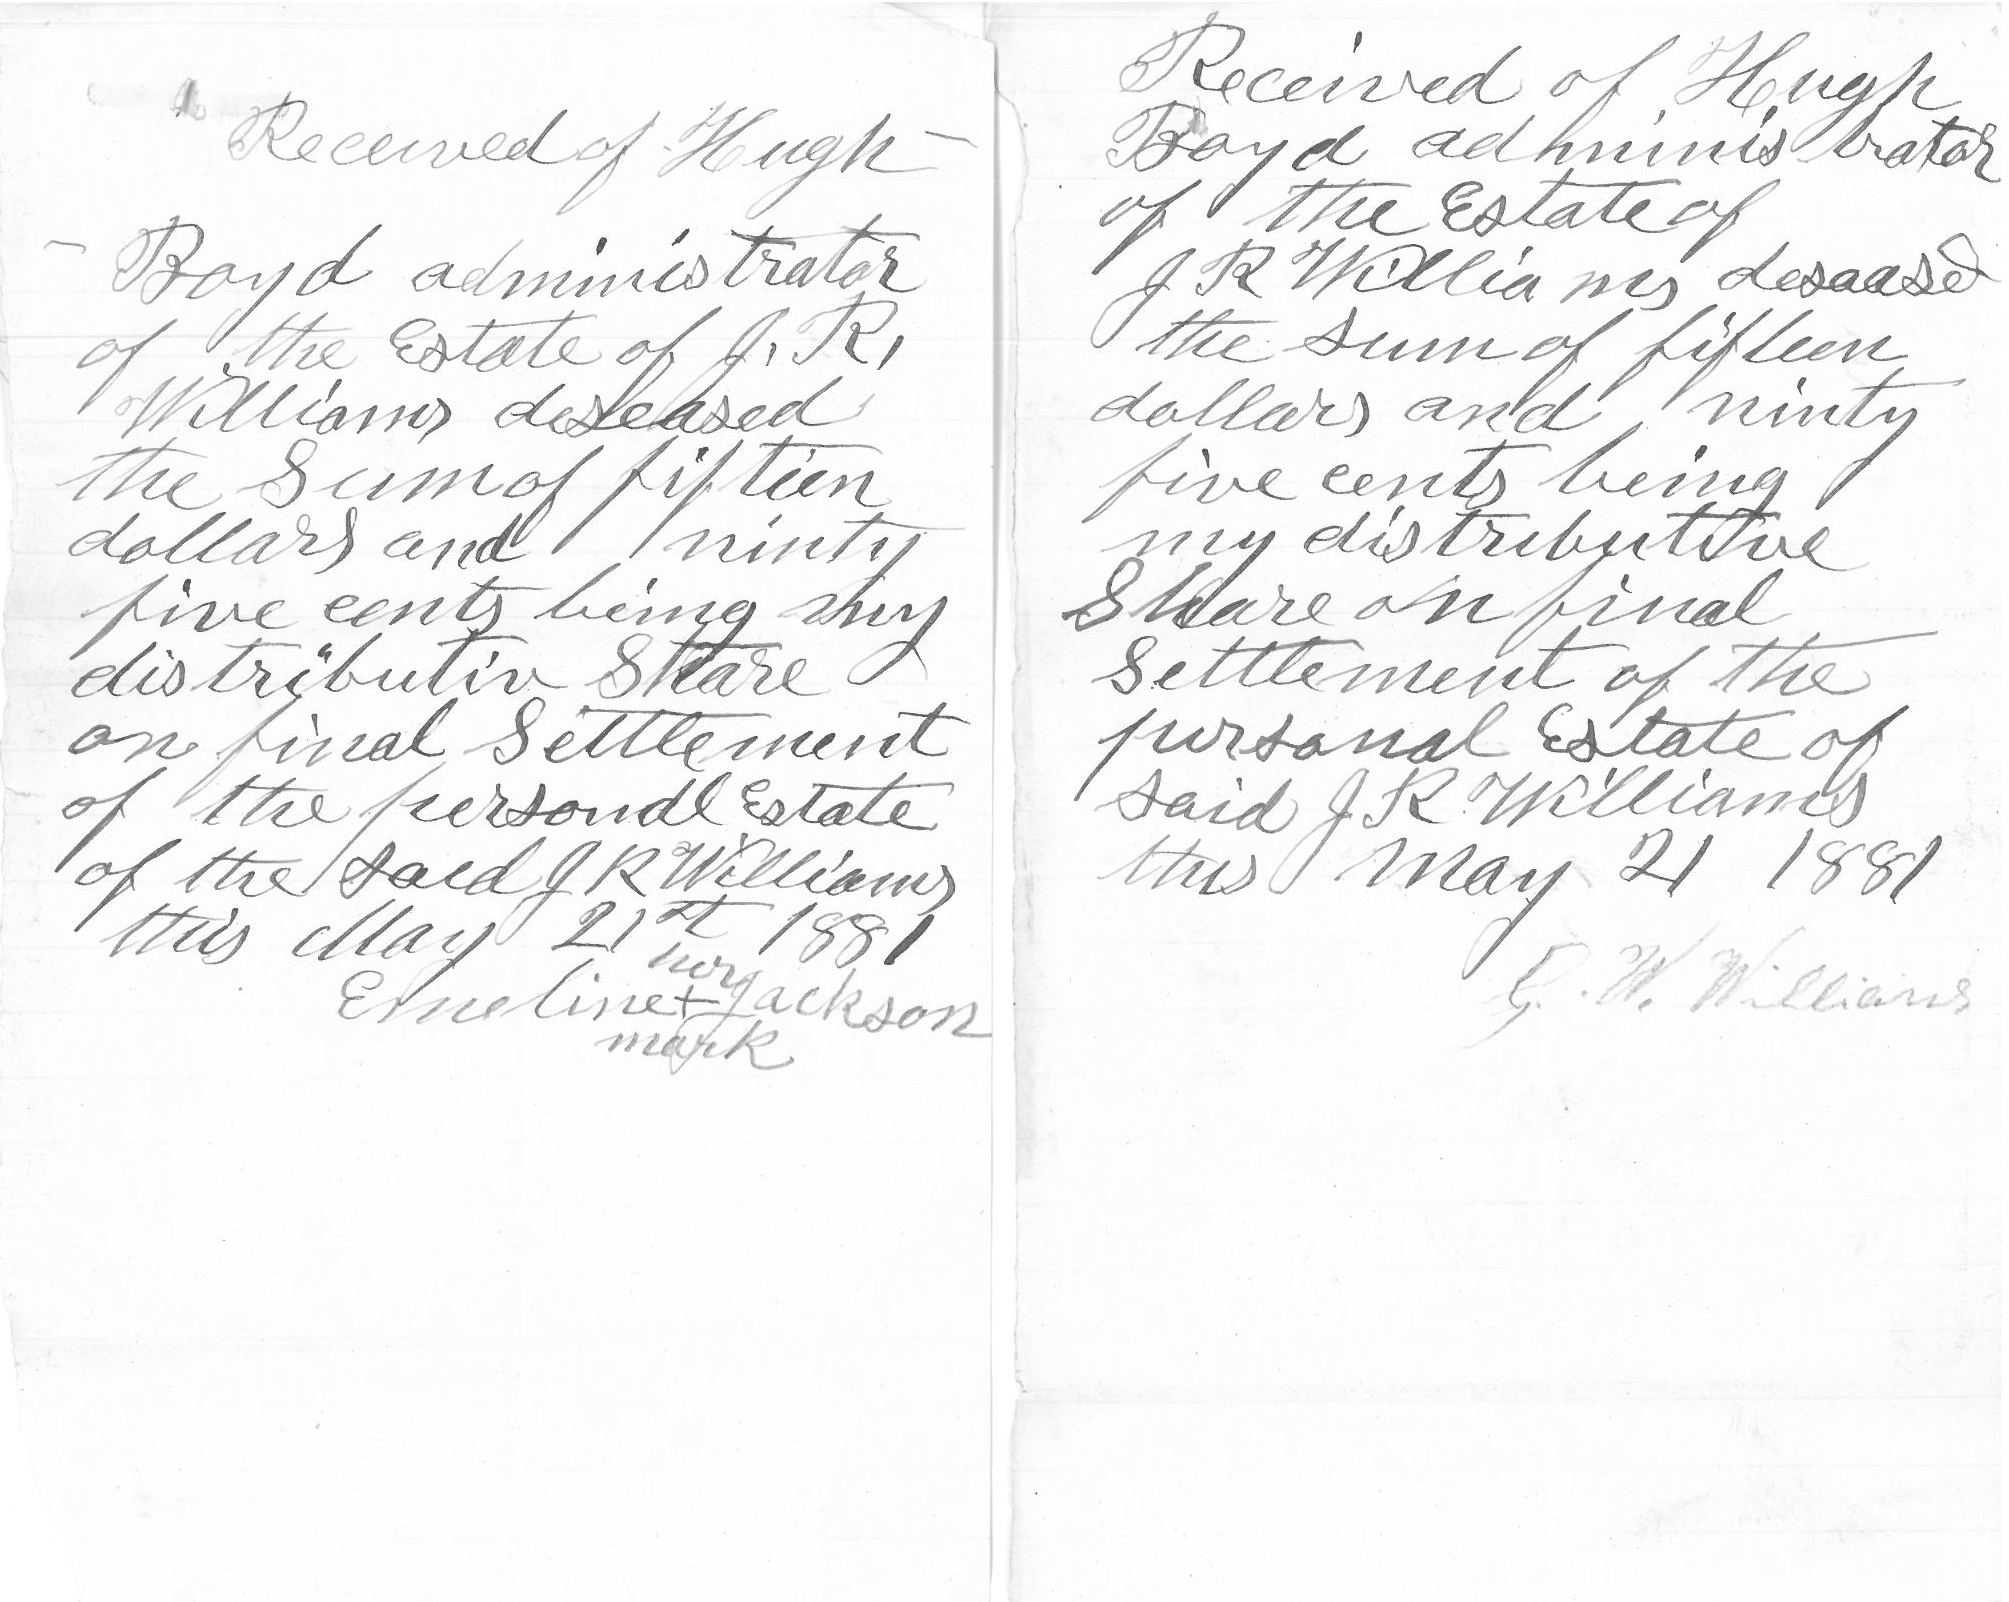 Received of Hugh –
– Boyd administrator
of the Estate of J. R.
Williams deseased
the Sum of fifteen
dollars and ninty
five cents being my
distributiv Share
on final Settlement
of the personal Estate
of the said J R Williams
this May 21st 1881
her
Emeline + Jackson
mark
Received of Hugh
Boyd administrator
of the Estate of
J R Williams desaased
the sum of fifteen
dollars and ninty
five cents being
my distributive
Share on final
Settlement of the
personal Estate of
said J R Williams
this May 21 1881
G. W. Williams